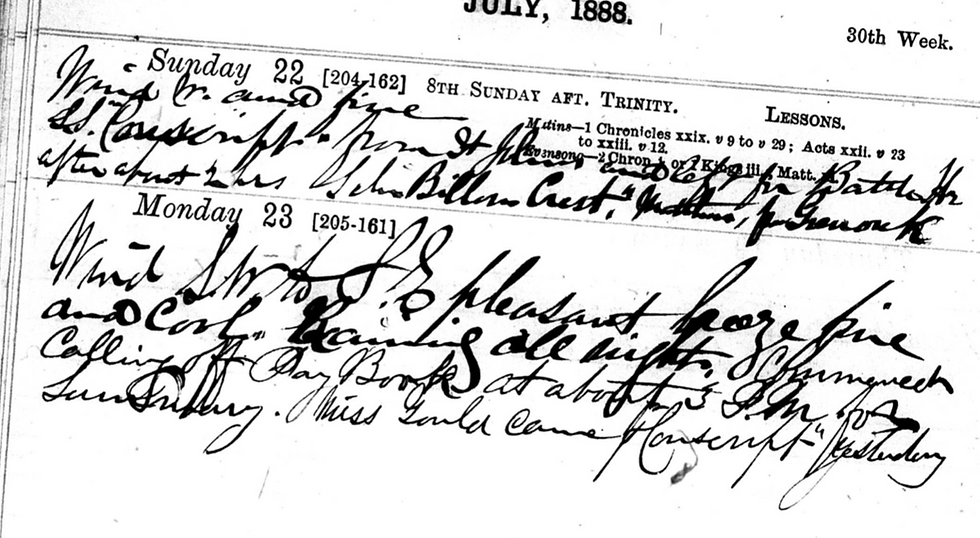 JULY, 1888.
30th Week.
Sunday 22 [204-162] 8TH SUNDAY AFT. TRINITY. LESSONS.
Matins—1 Chronicles xxix. v 9 to v 29; Acts xxii. v 23
to xxiii. v 12.
Evensong—2 Chron. i. or 1 Kings iii.; Matt.
Wind W. and fine
SS. "Conscript" from St Johns and left for Battle Hr
after about 2 hrs Schr Billow Crest, for Greenock
Monday 23 [205-161]
Wind S.W to S.E pleasant breeze fine
and Cool. Raining all night.
Calling off Day Book at about 3 P.M. of
Sundry. Miss Gould came "Conscript" Yesterday